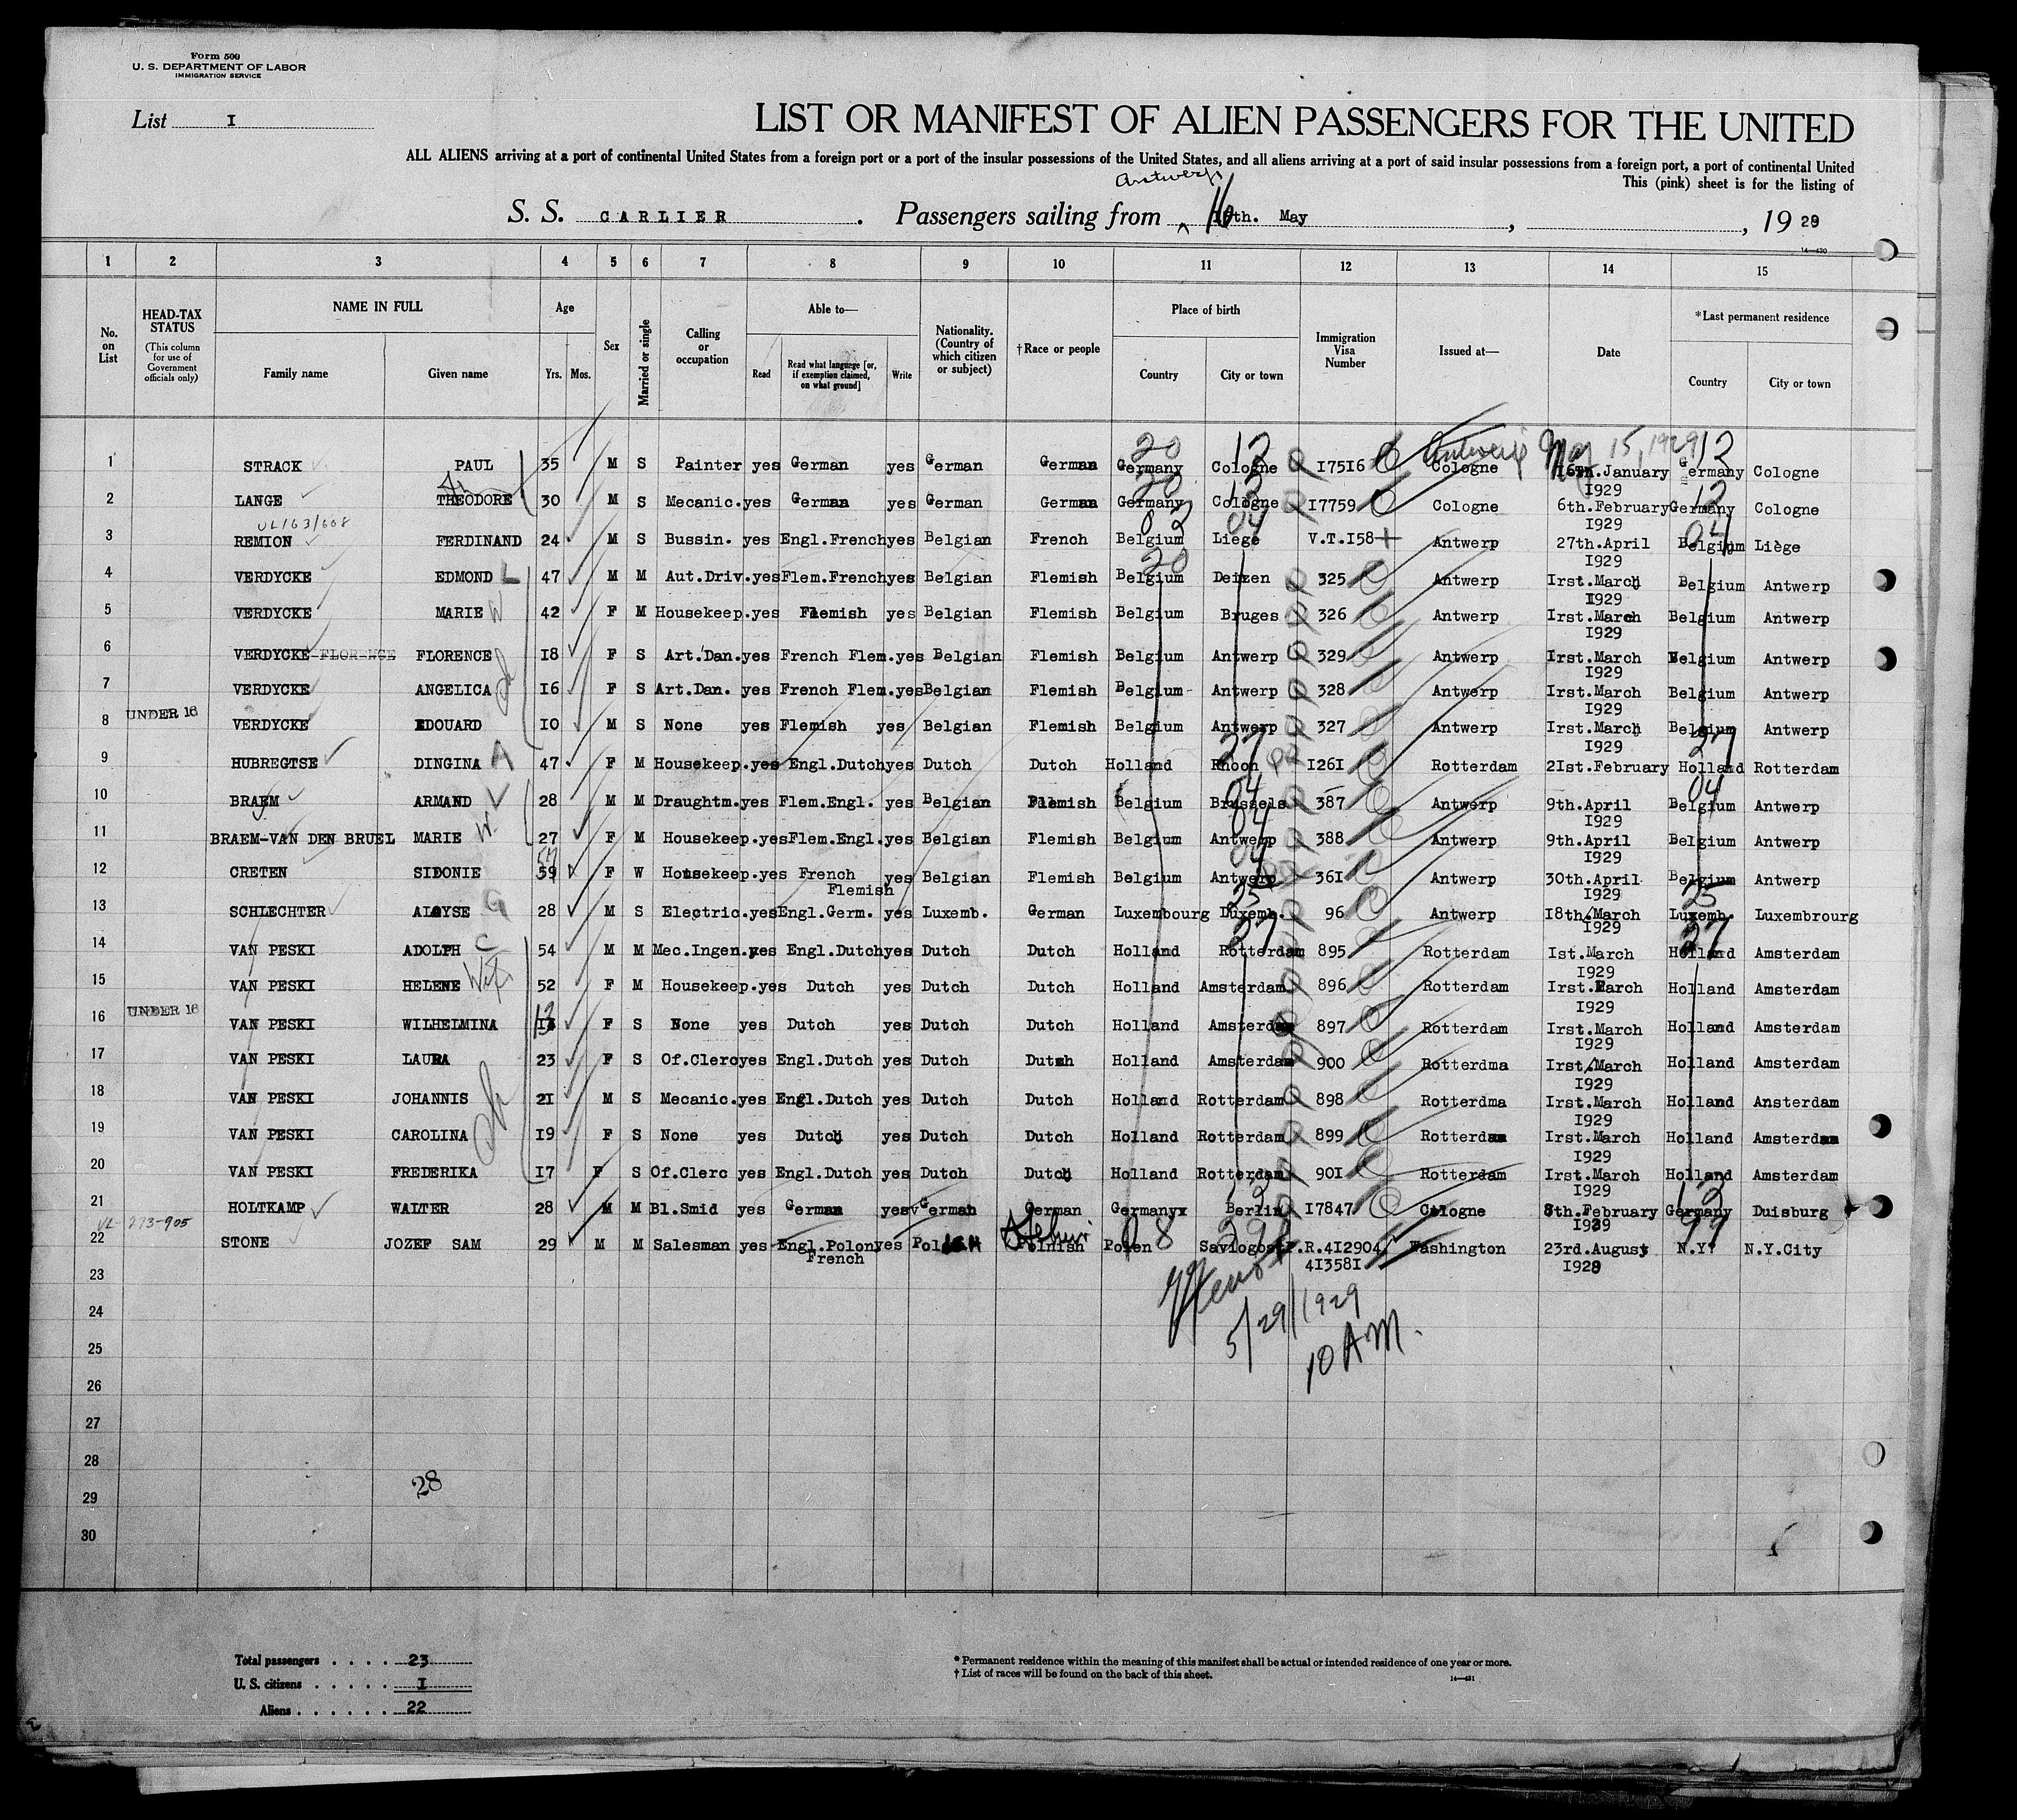 Form 500
U. S. DEPARTMENT OF LABOR
IMMIGRATION SERVICE
List I
LIST OR MANIFEST OF ALIEN PASSENGERS FOR THE UNITED
ALL ALIENS arriving at a port of continental United States from a foreign port or a port of the insular possessions of the United States, and all aliens arriving at a port of said insular possessions from a foreign port, a port of continental United
This (pink) sheet is for the listing of
Antwerp
S. S. CARLIER. Passengers sailing from 16th. May, 19 29
14—430
1 2 3 4 5 6 7 8 9 10 11 12 13 14 15
No. on List
HEAD-TAX STATUS (This column for use of Government officials only)
NAME IN FULL Family name Given name
Age Yrs. Mos.
Sex
Married or single
Calling or occupation
Able to— Read Read what language [or, if exemption claimed, on what ground] Write
Nationality. (Country of which citizen or subject)
†Race or people
Place of birth Country City or town
Immigration Visa Number
Issued at—
Date
*Last permanent residence Country City or town
20 12 Antwerp May 15, 1929 12
1 STRACK PAUL 35 M S Painter yes German yes German German Germany Cologne 17516 Cologne 16th.January 1929 Germany Cologne
20 12 12
2 LANGE THEODORE 30 M S Mecanic. yes German yes German German Germany Cologne I7759 Cologne 6th.February 1929 Germany Cologne
VL/63/608 02 04 04
3 REMION FERDINAND 24 M S Bussin. yes Engl.French yes Belgian French Belgium Liège V.T.I58 Antwerp 27th.April 1929 Belgium Liège
20
4 VERDYCKE EDMOND L 47 M M Aut.Driv. yes Flem.French yes Belgian Flemish Belgium Deizen 325 Antwerp Irst.March 1929 Belgium Antwerp
5 VERDYCKE MARIE W 42 F M Housekeep. yes Flemish yes Belgian Flemish Belgium Bruges 326 Antwerp Irst.March 1929 Belgium Antwerp
6 VERDYCKE-FLORENCE FLORENCE 18 F S Art.Dan. yes French Flem. yes Belgian Flemish Belgium Antwerp 329 Antwerp Irst.March 1929 Belgium Antwerp
7 VERDYCKE ANGELICA 16 F S Art.Dan. yes French Flem. yes Belgian Flemish Belgium Antwerp 328 Antwerp Irst.March 1929 Belgium Antwerp
8 UNDER 16 VERDYCKE EDOUARD 10 M S None yes Flemish yes Belgian Flemish Belgium Antwerp 327 Antwerp Irst.March 1929 Belgium Antwerp
27 27
9 HUBREGTSE DINGINA A 47 F M Housekeep. yes Engl.Dutch yes Dutch Dutch Holland Rhoon I26I Rotterdam 2Ist.February Holland Rotterdam
04 04
10 BRAEM ARMAND 28 M M Draughtm. yes Flem.Engl. yes Belgian Flemish Belgium Brussels 387 Antwerp 9th.April 1929 Belgium Antwerp
04
11 BRAEM-VAN DEN BRUEL MARIE W. 27 F M Housekeep. yes Flem.Engl. yes Belgian Flemish Belgium Antwerp 388 Antwerp 9th.April 1929 Belgium Antwerp
04
12 CRETEN SIDONIE 59 F W Housekeep. yes French Flemish yes Belgian Flemish Belgium Antwerp 36I Antwerp 30th.April 1929 Belgium Antwerp
25 25
13 SCHLECHTER ALOYSE G 28 M S Electric. yes Engl.Germ. yes Luxemb. German Luxembourg Luxemb. 96 Antwerp 18th.March 1929 Luxemb. Luxembrourg
27 27
14 VAN PESKI ADOLPH C 54 M M Mec.Ingen. yes Engl.Dutch yes Dutch Dutch Holland Rotterdam 895 Rotterdam Ist.March 1929 Holland Amsterdam
15 VAN PESKI HELENE Wife 52 F M Housekeep. yes Dutch yes Dutch Dutch Holland Amsterdam 896 Rotterdam Irst.March 1929 Holland Amsterdam
16 UNDER 16 VAN PESKI WILHELMINA 13 F S None yes Dutch yes Dutch Dutch Holland Amsterdam 897 Rotterdam Irst.March 1929 Holland Amsterdam
17 VAN PESKI LAURA 23 F S Of.Clerc yes Engl.Dutch yes Dutch Dutch Holland Amsterdam 900 Rotterdma Irst.March 1929 Holland Amsterdam
18 VAN PESKI JOHANNIS 21 M S Mecanic. yes Engl.Dutch yes Dutch Dutch Holland Rotterdam 898 Rotterdma Irst.March 1929 Holland Ansterdam
19 VAN PESKI CAROLINA 19 F S None yes Dutch yes Dutch Dutch Holland Rotterdam 899 Rotterdam Irst.March 1929 Holland Amsterdam
20 VAN PESKI FREDERIKA 17 F S Of.Clerc yes Engl.Dutch yes Dutch Dutch Holland Rotterdam 90I Rotterdam Irst.March 1929 Holland Amsterdam
12 12
21 HOLTKAMP WALTER 28 M M Bl.Smid yes German yes German German Germany Berlin I7847 Cologne 8th.February 1929 Germany Duisburg
VL-273-905 Hebrew 08 99
22 STONE JOZEF SAM 29 M M Salesman yes Engl.Polon French yes Polish Polnish Polen R.4I2904 4I358I Washington 23rd.August 1928 N.Y. N.Y.City
23
5/29/1929
24
10 A.M.
25
26
27
28
28
29
30
Total passengers . . . . 23
U. S. citizens . . . . . I
Aliens . . . . . . 22
* Permanent residence within the meaning of this manifest shall be actual or intended residence of one year or more.
† List of races will be found on the back of this sheet.
14—431